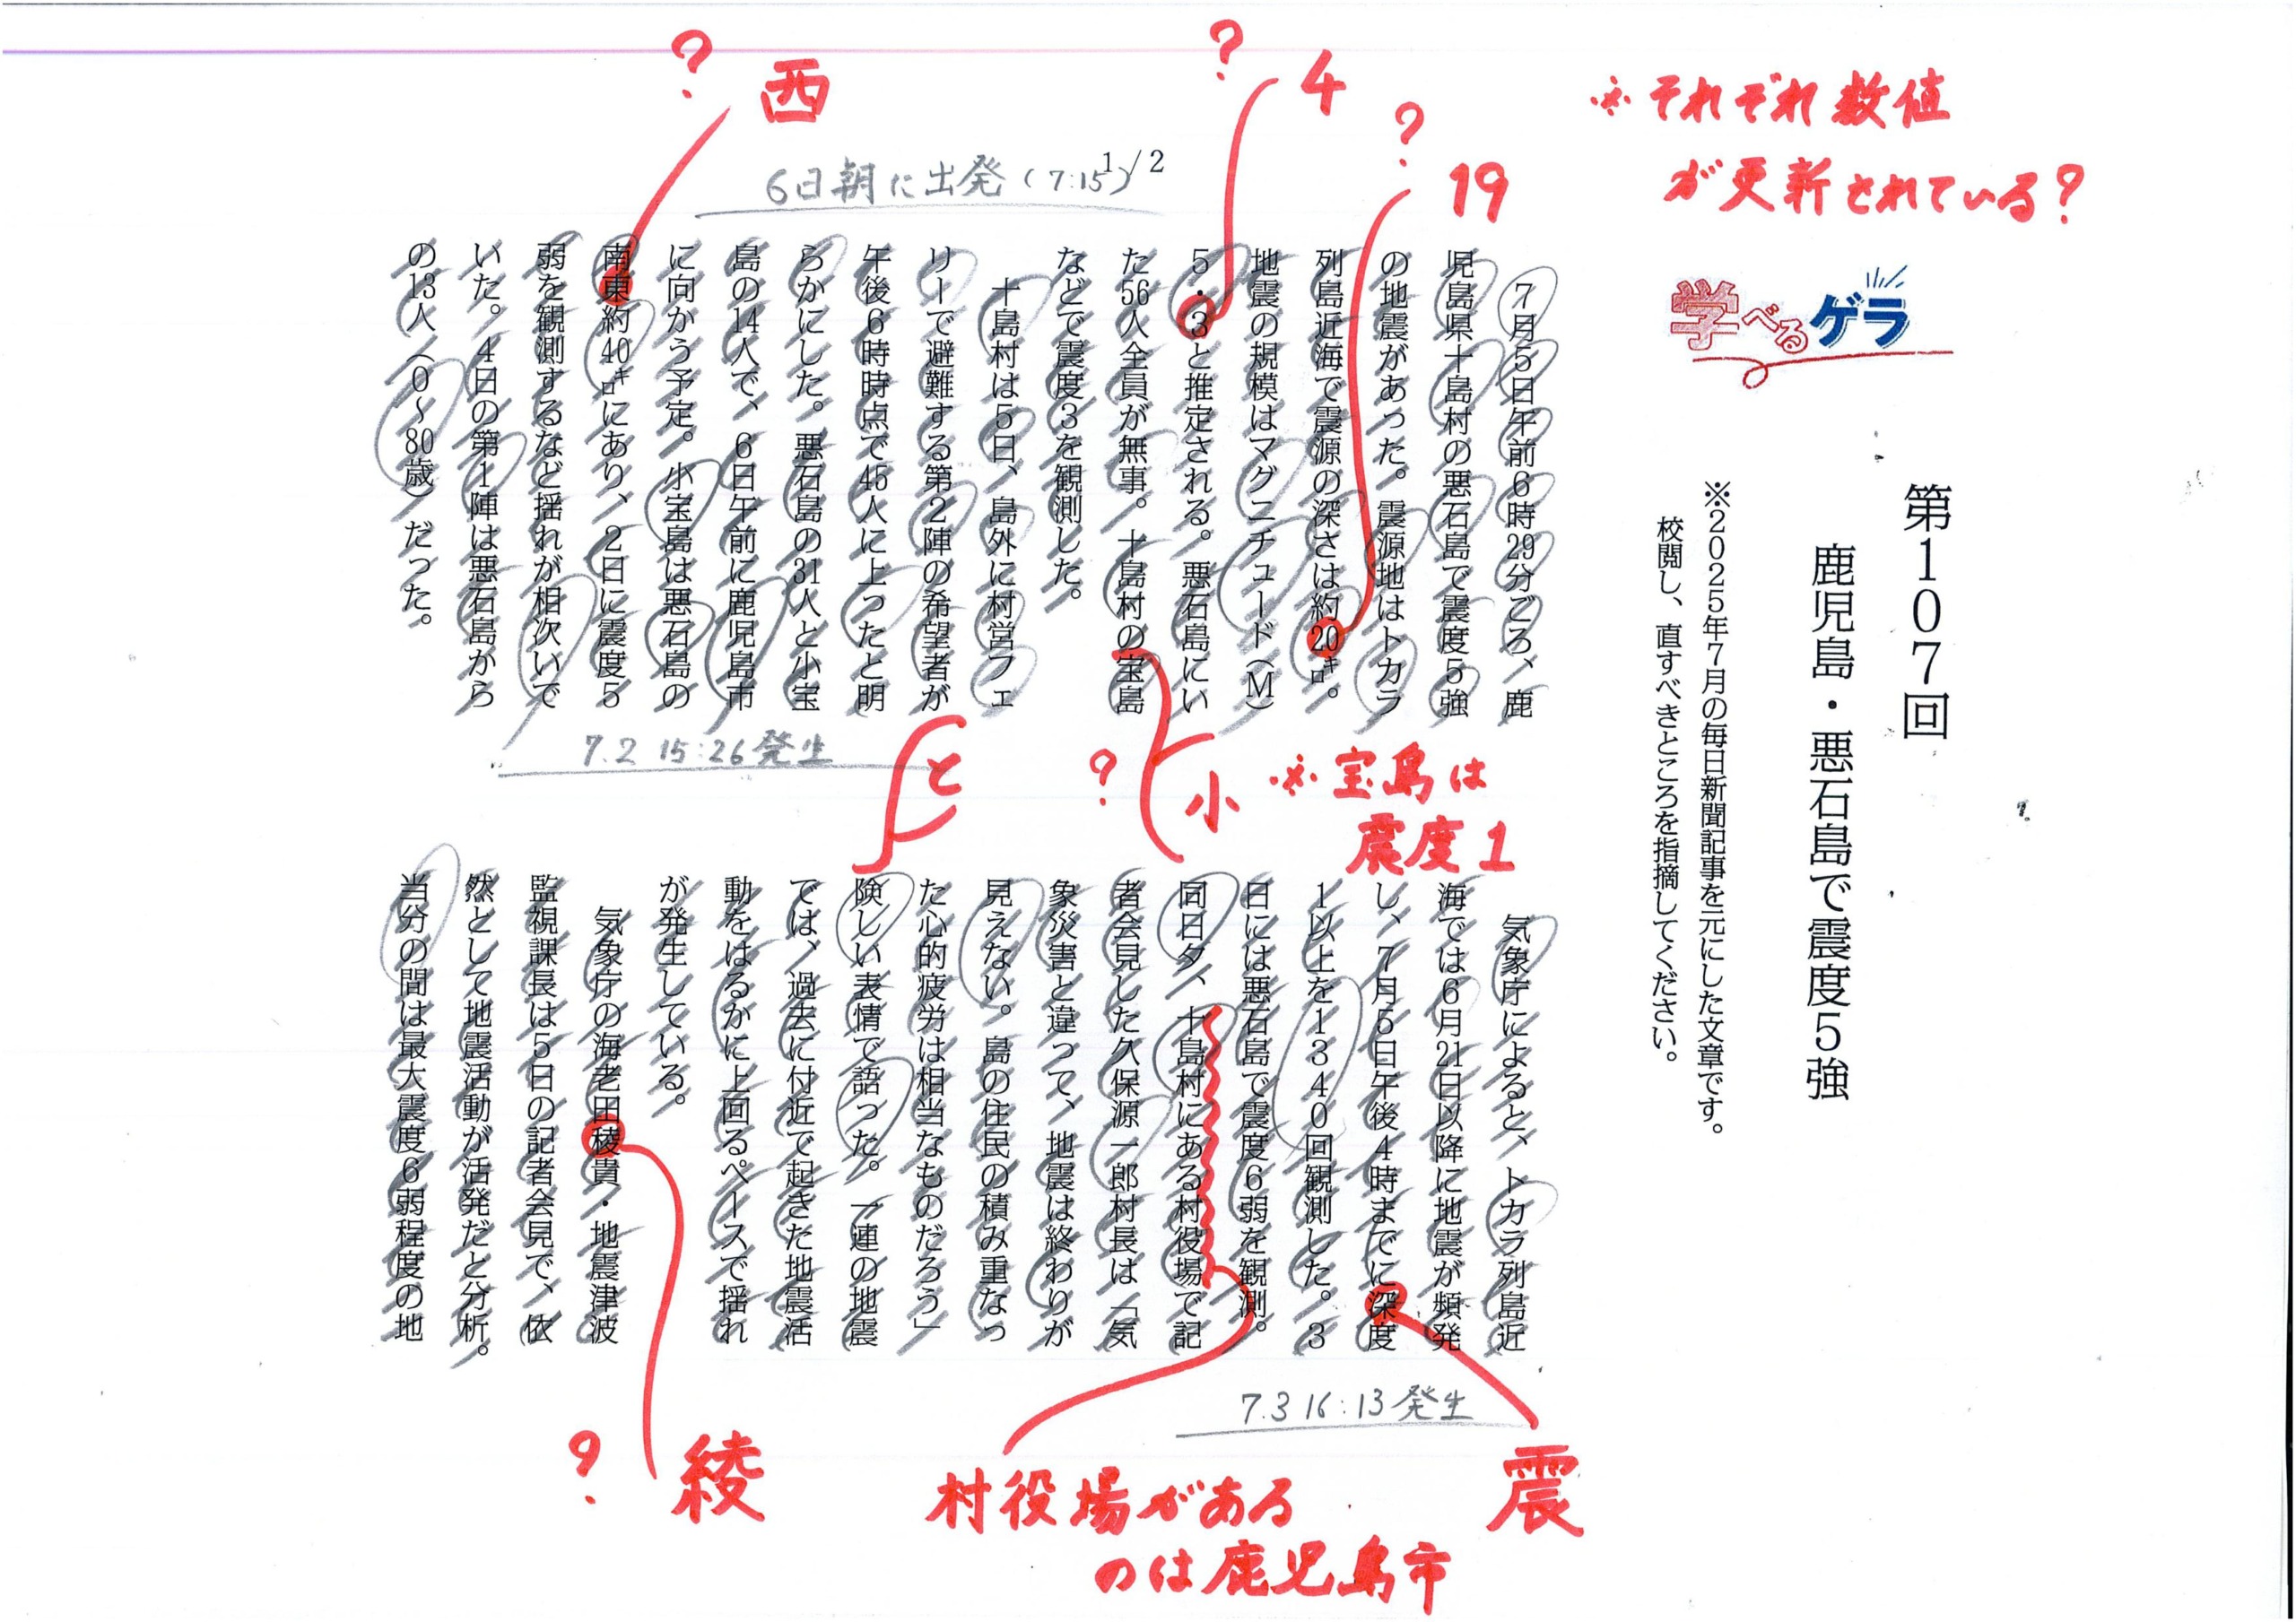 ※それぞれ数値
が更新されている？
学べるゲラ
第１０７回
鹿児島・悪石島で震度５強
※２０２５年７月の毎日新聞記事を元にした文章です。
校閲し、直すべきところを指摘してください。
1/2
７月５日午前６時29分ごろ、鹿
児島県十島村の悪石島で震度５強
の地震があった。震源地はトカラ
列島近海で震源の深さは約20㌔。
地震の規模はマグニチュード（Ｍ）
５・３と推定される。悪石島にい
た56人全員が無事。十島村の宝島
などで震度３を観測した。
十島村は５日、島外に村営フェ
リーで避難する第２陣の希望者が
午後６時時点で45人に上ったと明
らかにした。悪石島の31人と小宝
島の14人で、６日午前に鹿児島市
に向かう予定。小宝島は悪石島の
南東約40㌔にあり、２日に震度５
弱を観測するなど揺れが相次いで
いた。４日の第１陣は悪石島から
の13人（０〜80歳）だった。
19
？
4
？
西
？
6日朝に出発（7:15）
7.2 15:26発生
小
？
※宝島は
震度1
と
気象庁によると、トカラ列島近
海では６月21日以降に地震が頻発
し、７月５日午後４時までに深度
１以上を１３４０回観測した。３
日には悪石島で震度６弱を観測。
同日夕、十島村にある村役場で記
者会見した久保源一郎村長は「気
象災害と違って、地震は終わりが
見えない。島の住民の積み重なっ
た心的疲労は相当なものだろう」
険しい表情で語った。一連の地震
では、過去に付近で起きた地震活
動をはるかに上回るペースで揺れ
が発生している。
気象庁の海老田稜貴・地震津波
監視課長は５日の記者会見で、依
然として地震活動が活発だと分析。
当分の間は最大震度６弱程度の地
7.3 16:13発生
震
村役場がある
のは鹿児島市
綾
？